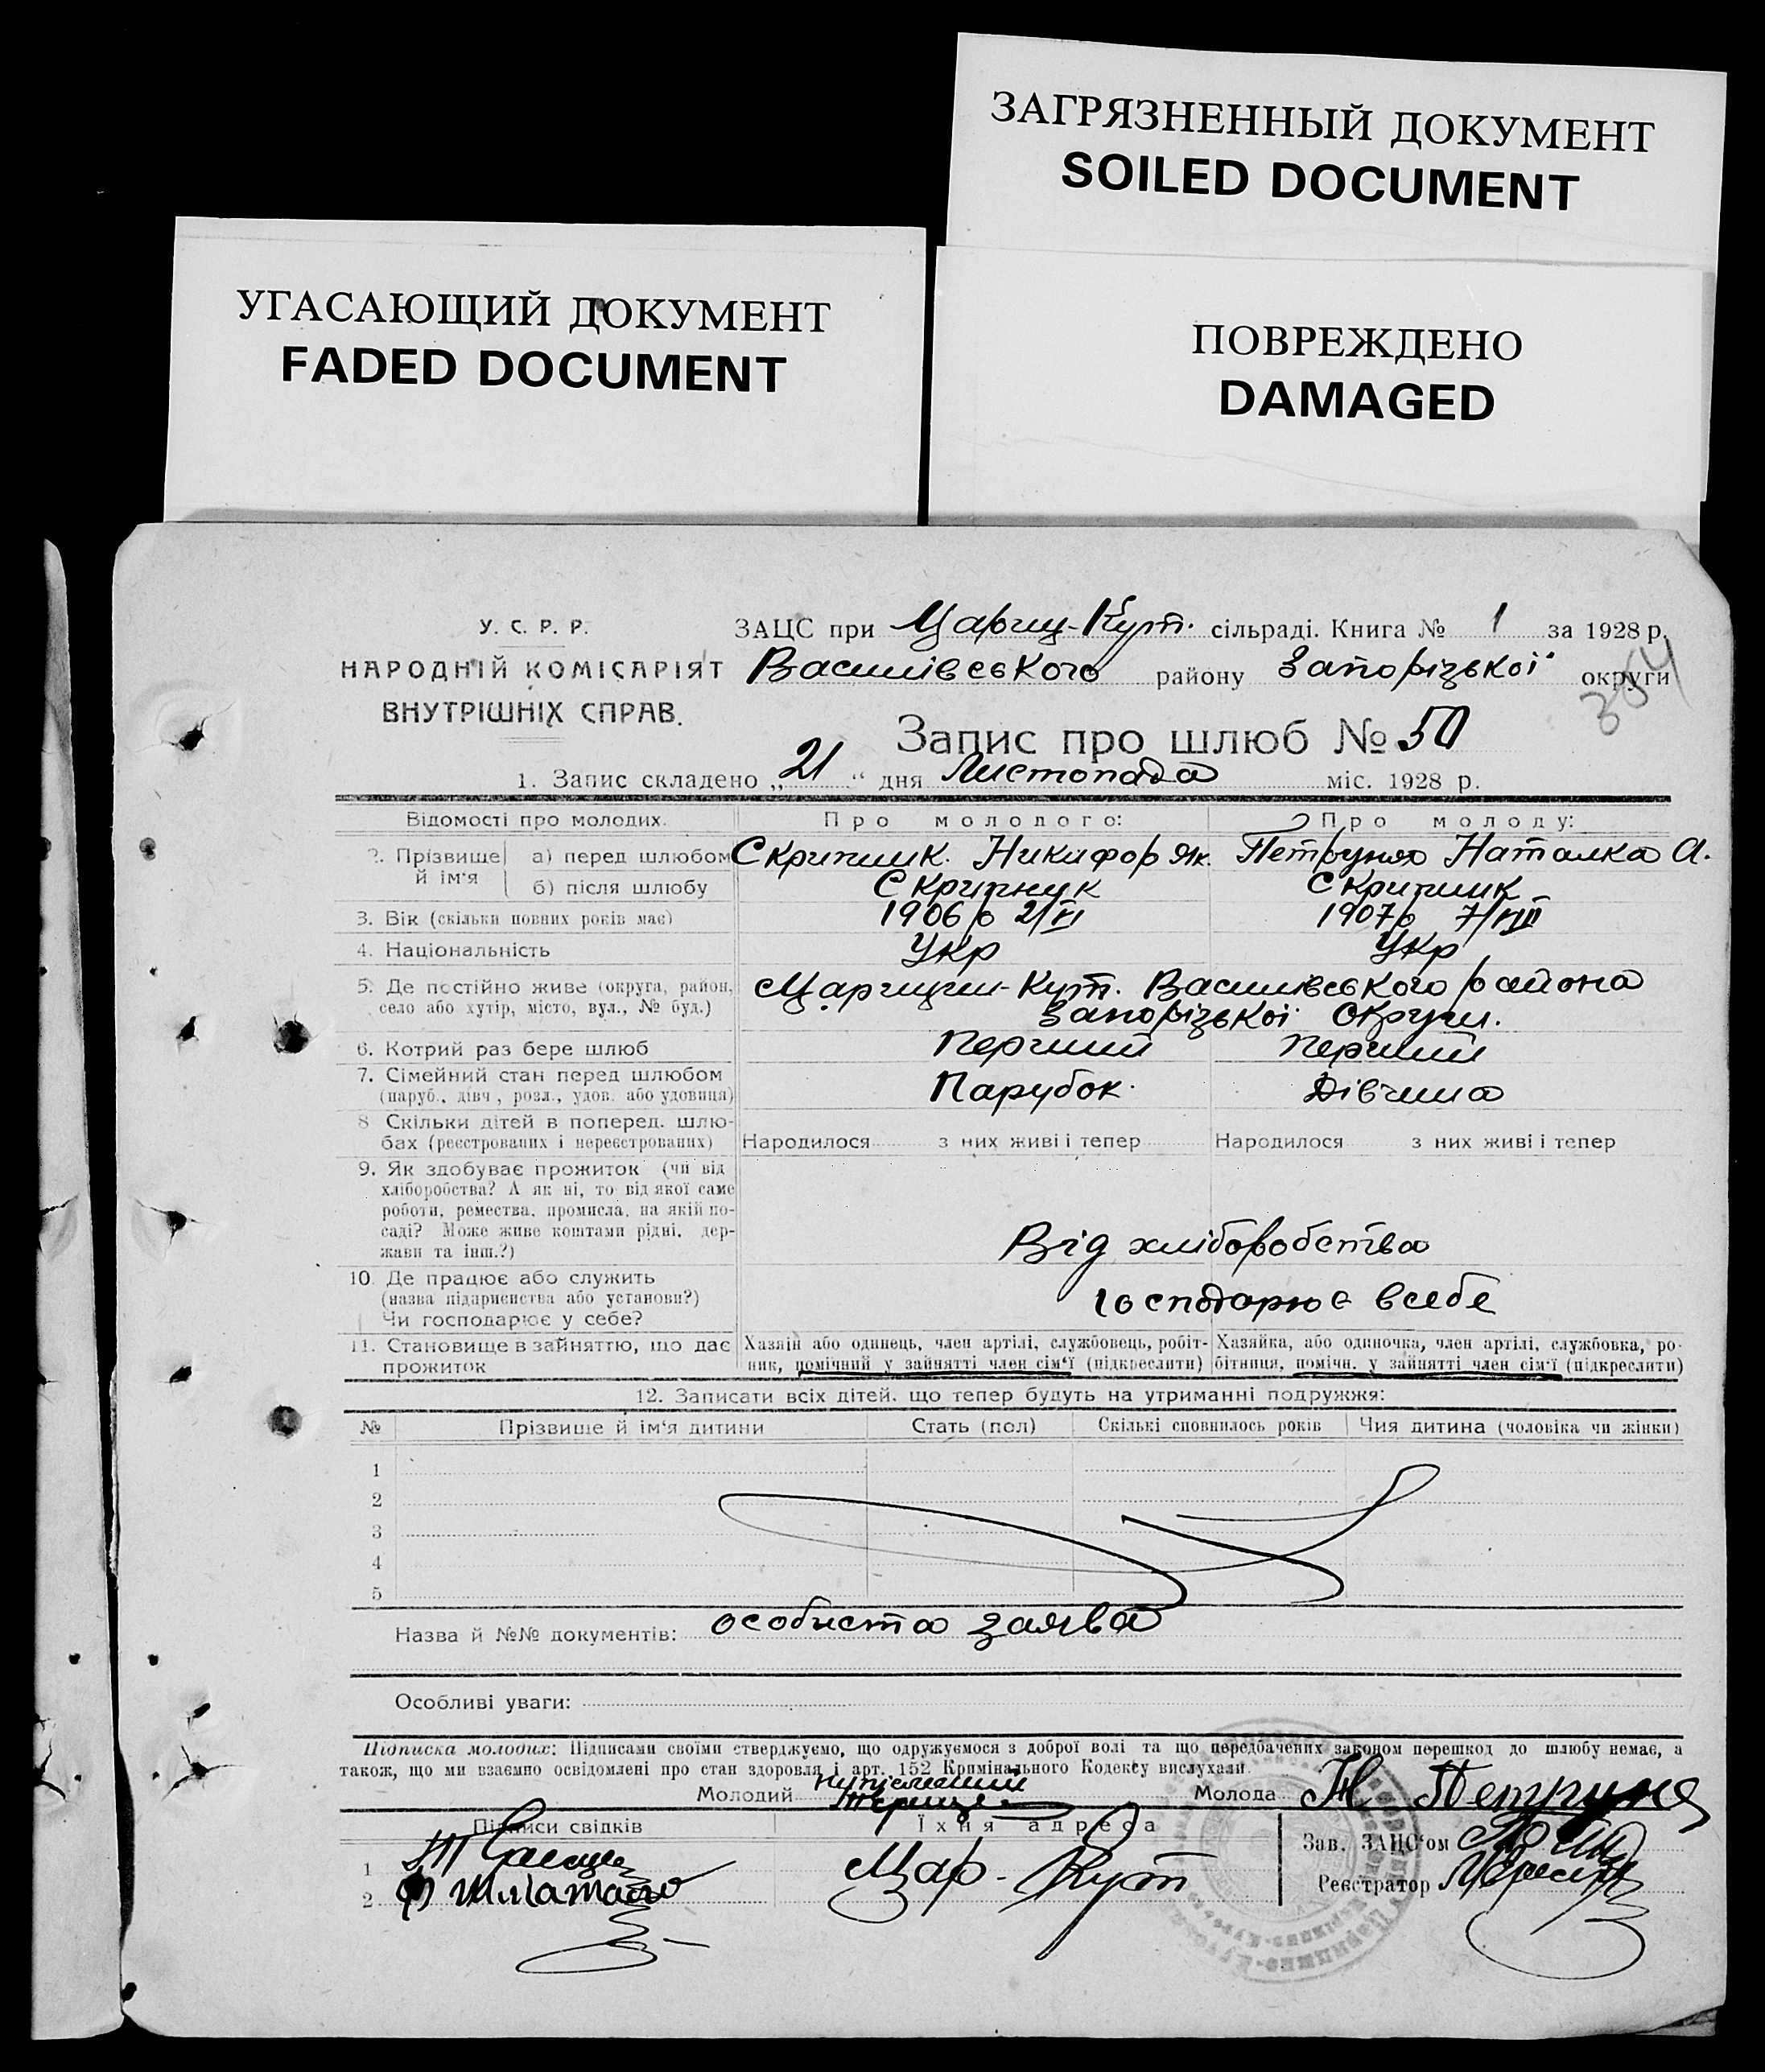 ЗАГРЯЗНЕННЫЙ ДОКУМЕНТ
SOILED DOCUMENT
УГАСАЮЩИЙ ДОКУМЕНТ
FADED DOCUMENT
ПОВРЕЖДЕНО
DAMAGED
У. С. Р. Р.
НАРОДНІЙ КОМІСАРІЯТ
ВНУТРІШНІХ СПРАВ.
ЗАЦС при Цариц-Кут. сільраді. Книга № 1 за 1928 р.
Василівського району Запорізької округи
364
Запис про шлюб № 50
1. Запис складено „ 21 “ дня Листопада міс. 1928 р.
Відомості про молодих. Про молодого: Про молоду:
2. Прізвище й ім'я а) перед шлюбом Скрипник Никифор Як. Петруня Наталка А.
б) після шлюбу Скрипник Скрипник
3. Вік (скільки повних років має) 1906 р 2/VI 1907 р 7/VIII
4. Національність Укр Укр
5. Де постійно живе (округа, район, село або хутір, місто, вул., № буд.) Царицин-Кут. Василівського района
Запорізької Округи.
6. Котрий раз бере шлюб Перший Перший
7. Сімейний стан перед шлюбом Парубок. Дівчина
(паруб., дівч., розл., удов. або удовиця)
8 Скільки дітей в поперед. шлю-
бах (реєстрованих і нереєстрованих) Народилося з них живі і тепер Народилося з них живі і тепер
9. Як здобуває прожиток (чи від
хліборобства? А як ні, то від якої саме
роботи, ремества, промисла, на якій по-
саді? Може живе коштами рідні, дер-
жави та інш.?) Від хліборобства
10. Де працює або служить
(назва підприємства або установи?) господарює всебе
Чи господарює у себе?
11. Становище в зайняттю, що дає Хазяїн або одинець, член артілі, службовець, робіт- Хазяйка, або одиночка, член артілі, службовка, ро-
прожиток ник, помічний у зайнятті член сім'ї (підкреслити) бітниця, помічн. у зайнятті член сім'ї (підкреслити)
12. Записати всіх дітей, що тепер будуть на утриманні подружжя:
№ Прізвище й ім'я дитини Стать (пол) Скількі сповнилось років Чия дитина (чоловіка чи жінки)
1
2
3
4
5
Назва й №№ документів: особиста заява
Особливі уваги:
Підписка молодих: Підписами своїми стверджуємо, що одружуємося з доброї волі та що передбачених законом перешкод до шлюбу немає, а
також, що ми взаємно освідомлені про стан здоровля і арт. 152 Кримінального Кодексу вислухали.
Молодий Молода Н Петруня
Підписи свідків Їхня адреса Зав. ЗАЦС'ом
1 Цар-Кут Реєстратор
2